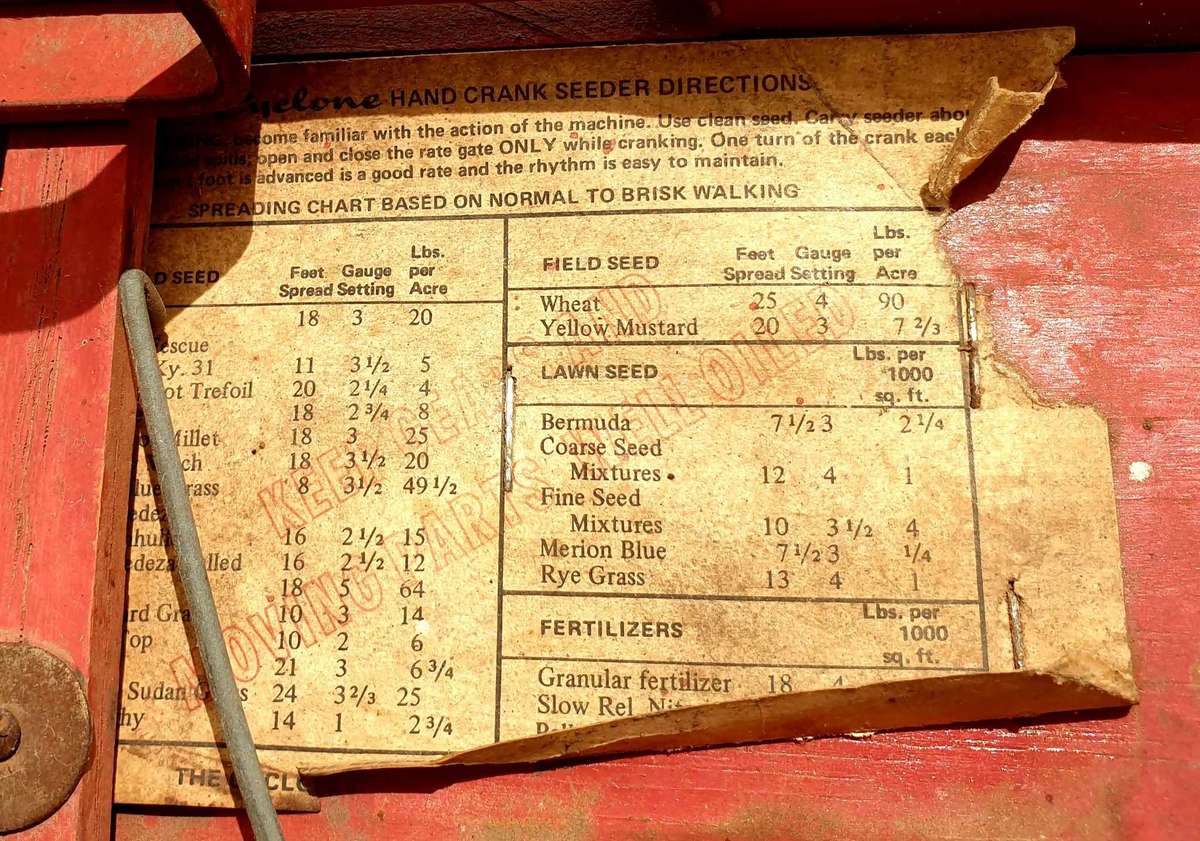 Cyclone HAND CRANK SEEDER DIRECTIONS
become familiar with the action of the machine. Use clean seed. Carry seeder
open and close the rate gate ONLY while cranking. One turn of the crank each
foot is advanced is a good rate and the rhythm is easy to maintain.
SPREADING CHART BASED ON NORMAL TO BRISK WALKING
SEED Feet Spread Gauge Setting Lbs. per Acre
18 3 20
Ky. 31 11 3 1/2 5
Trefoil 20 2 1/4 4
18 2 3/4 8
Millet 18 3 25
18 3 1/2 20
8 3 1/2 49 1/2
16 2 1/2 15
16 2 1/2 12
18 5 64
10 3 14
10 2 6
21 3 6 3/4
Sudan 24 3 2/3 25
14 1 2 3/4
THE
FIELD SEED Feet Spread Gauge Setting Lbs. per Acre
Wheat 25 4 90
Yellow Mustard 20 3 7 2/3
LAWN SEED Lbs. per 1000 sq. ft.
Bermuda 7 1/2 3 2 1/4
Coarse Seed
Mixtures 12 4 1
Fine Seed
Mixtures 10 3 1/2 4
Merion Blue 7 1/2 3 1/4
Rye Grass 13 4 1
FERTILIZERS Lbs. per 1000 sq. ft.
Granular fertilizer 18 4
Slow Rel.
KEEP GEARS AND
MOVING PARTS WELL OILED